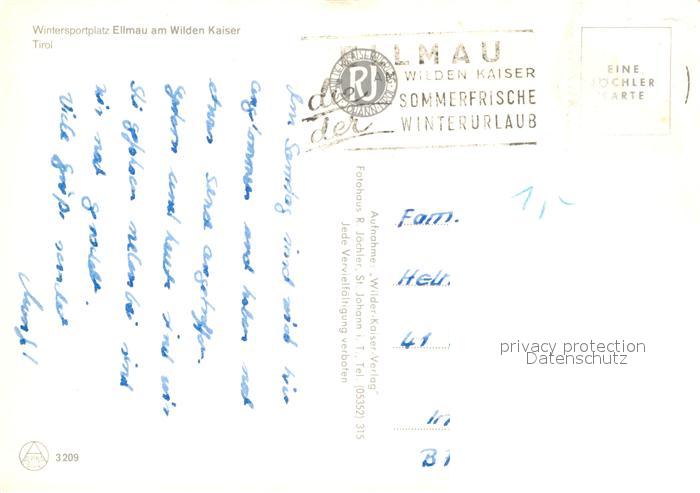 Wintersportplatz Ellmau am Wilden Kaiser
Tirol
ELLMAU
WILDEN KAISER
die SOMMERFRISCHE
der WINTERURLAUB
EINE
JÖCHLER
KARTE
Am Samstag sind wir hier
angekommen und haben noch
etwas angetroffen.
Gestern und heute sind wir
Ski gefahren nebenbei sind
wir
Viele Grüße sendet
Aufnahme: „Wilder-Kaiser-Verlag"
Fotohaus R. Jöchler, St. Johann i. T., Tel. (05352) 315
Jede Vervielfältigung verboten
1,-
Fam.
Helr.
41
B1
privacy protection
Datenschutz
3209